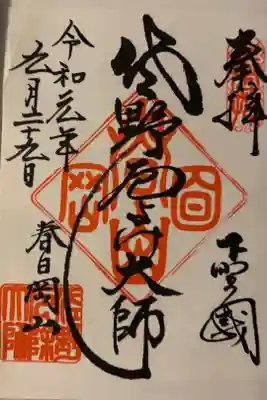 奉拝
下野国
佐野厄よけ大師
春日岡山
令和元年
五月二十五日